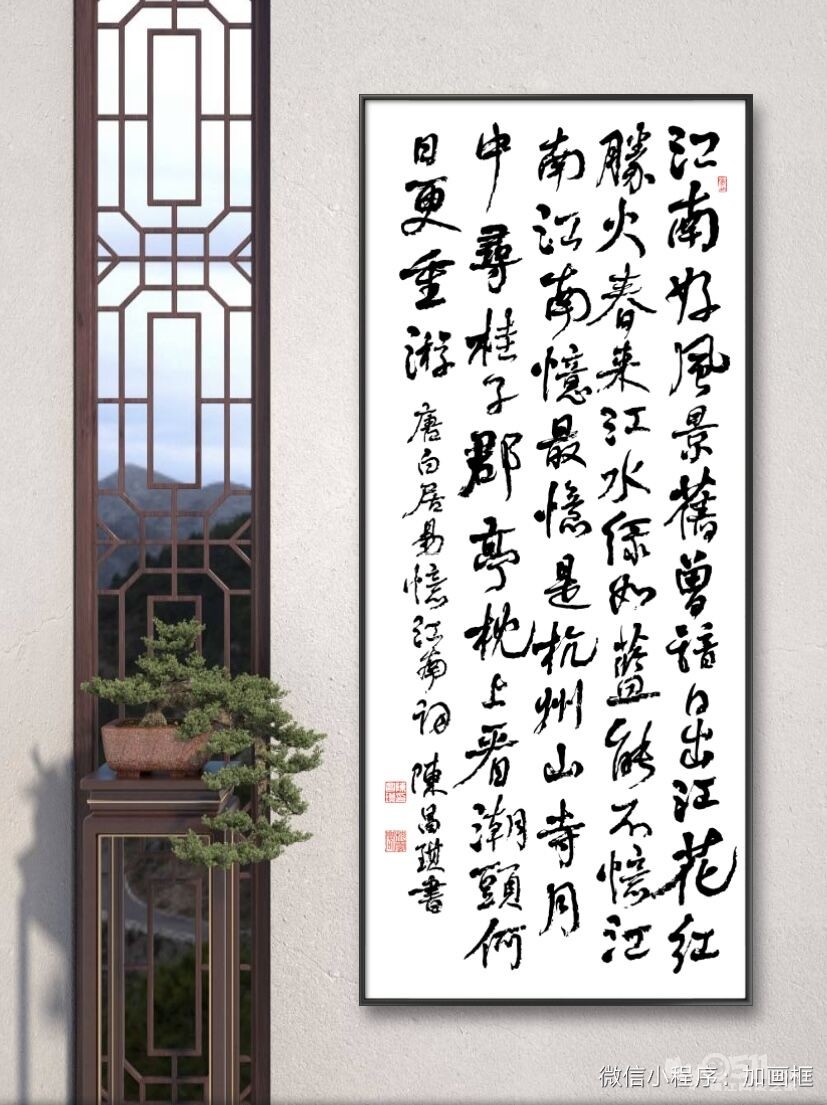 江南好風景舊曾諳日出江花紅
勝火春来江水綠如藍能不憶江
南江南憶最憶是杭州山寺月
中尋桂子郡亭枕上看潮頭何
日更重游
唐白居易憶江南詞 陳昌琪書
微信小程序：加画框